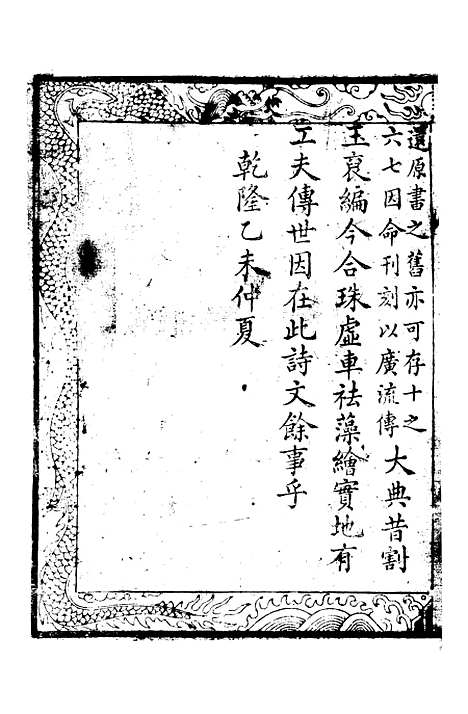 還原書之舊亦可存十之
六七因命刊刻以廣流傳
大典昔割
玉裒編今合珠虛車祛藻繪實地有
工夫傳世因在此詩文餘事乎
乾隆乙未仲夏